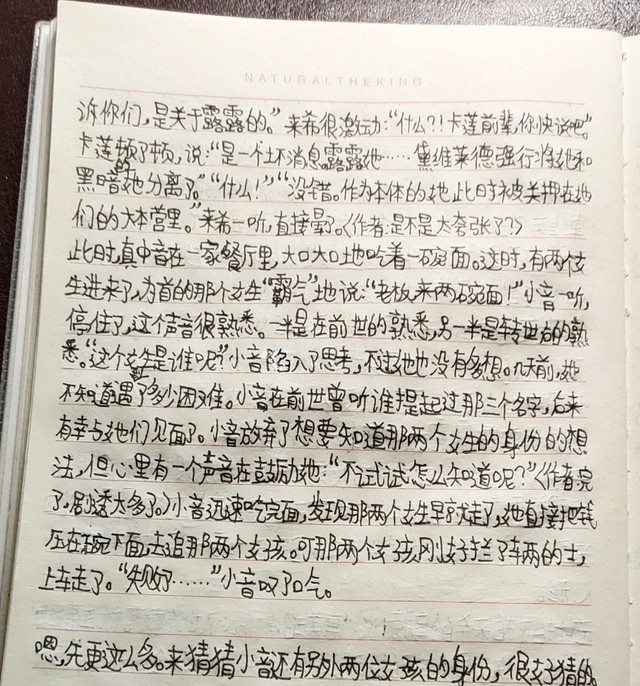 NATURALTHEKING
诉你们，是关于露露的。”来希很激动：“什么？！卡莲前辈，你快说吧。”
卡莲顿了顿，说：“是一个坏消息。露露她……黛维莱德强行将她和
黑暗的她分离了。”“什么！”“没错。作为本体的她此时被关押在她
们的大本营里。”来希一听，直接晕了。（作者：是不是太夸张了？）
此时，真中音在一家餐厅里，大口大口地吃着一碗面。这时，有两个女
生进来了，为首的那个女生“霸气”地说：“老板，来两碗面！”小音一听，
停住了，这个声音很熟悉。一半是在前世的熟悉，另一半是转世后的熟
悉。“这个女生是谁呢？”小音陷入了思考，不过她也没有多想。几天前，她
不知道遇到了多少困难。小音在前世曾听谁提起过那三个名字，后来
有幸与她们见面了。小音放弃了想要知道那两个女生的身份的想
法，但心里有一个声音在鼓励她：“不试试怎么知道呢？”（作者：完
了，剧透太多了。）小音迅速吃完面，发现那两个女生早就走了，她直接把钱
压在碗下面，去追那两个女孩。可那两个女孩刚好拦了车两的士，
上车走了。“失败了……”小音叹了口气。
嗯，先更这么多。来猜猜小音还有另外两位女孩的身份，很好猜的。